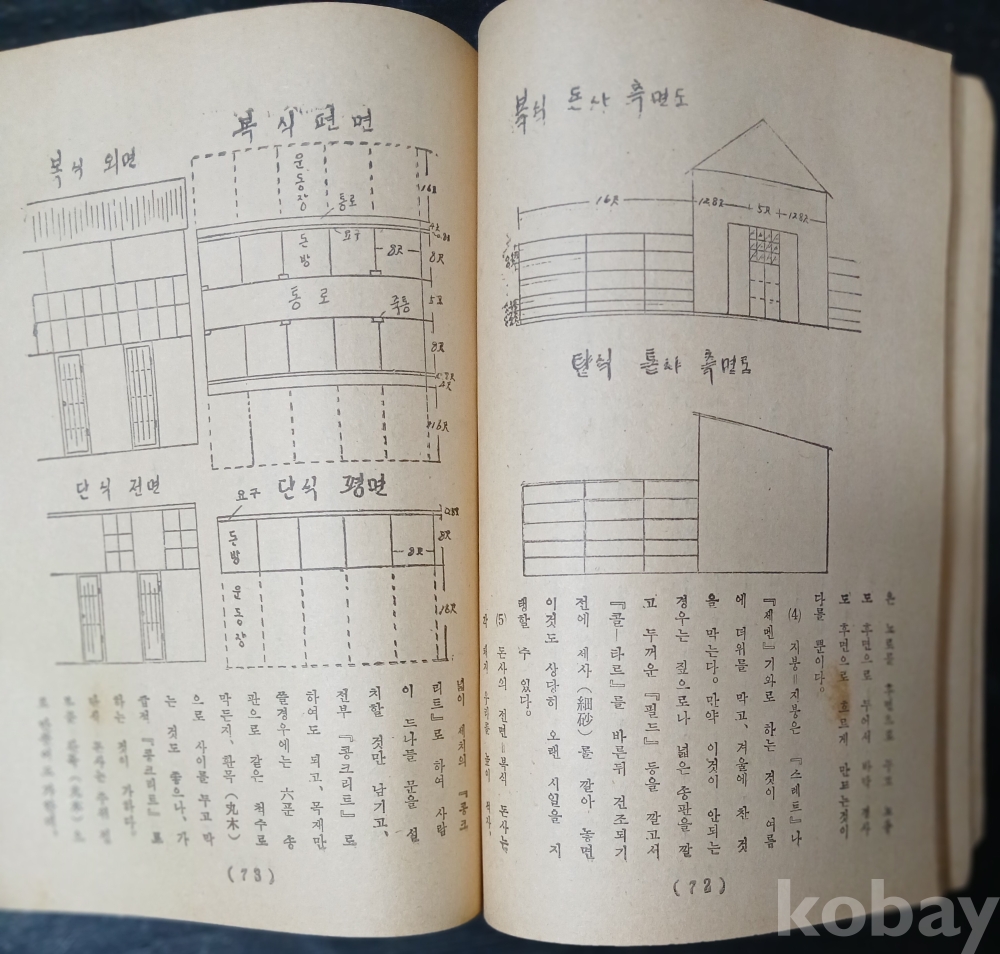 복식 돈사 측면도
16尺 12.8尺 5尺 12.8尺
단식 돈사 측면도
도 후면으로 흐르게 만드는것이
다를 뿐이다.
⑷ 지붕=지붕은 『스레트』나
『세멘』기와로 하는 것이 여름
에 더위를 막고, 겨울에 찬 것
을 막는다. 만약 이것이 안되는
경우는 짚으로나 넓은 송판을 깔
고 두꺼운 『필드』 등을 깔고서
『콜—타르』를 바른뒤 건조되기
전에 세사(細砂)를 깔아 놓면
이것도 상당히 오랜 시일을 지
탱할 수 있다.
⑸ 돈사의 전면=복식 돈사는
(72)
복식 편면
복식 외면
운동장
통로
16尺
요구
돈방
8尺
8尺
통로
5尺
죽통
8尺
16尺
단식 전면
요구
단식 평면
돈방
8尺
8尺
운동장
16尺
넓이 세치의 『콩크
리트』로 하여 사람
이 드나들 문을 설
치할 것만 남기고,
전부 『콩크리트』로
하여도 되고, 목재만
쓸경우에는 六푼 송
판으로 같은 척수로
막든지, 환목(丸木)
으로 사이를 두고 막
는 것도 좋으나, 가
급적 『콩크리트』로
하는 것이 가하다.
(73)
kobay